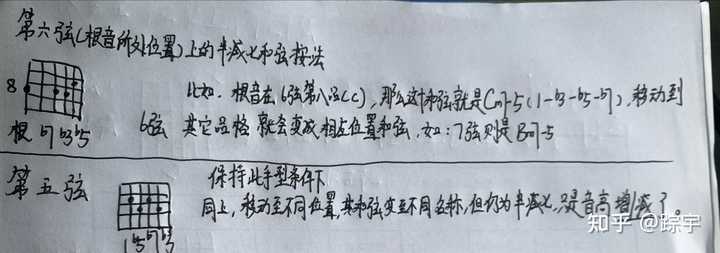 第六弦(根音所处位置)上的半减七和弦按法
8
根 b7 b3 b5
比如. 根音在6弦第八品(C), 那么这个和弦就是Cm7-5(1-b3-b5-b7), 移动到
6弦 其它品格就会变成相应位置和弦, 如:7弦则是Bm7-5
第五弦
保持此手型条件下
同上, 移动至不同位置, 其和弦变至不同名称, 但仍为半减七, 只是音高增减了。
1 b5 b7 b3
知乎 @踪宇